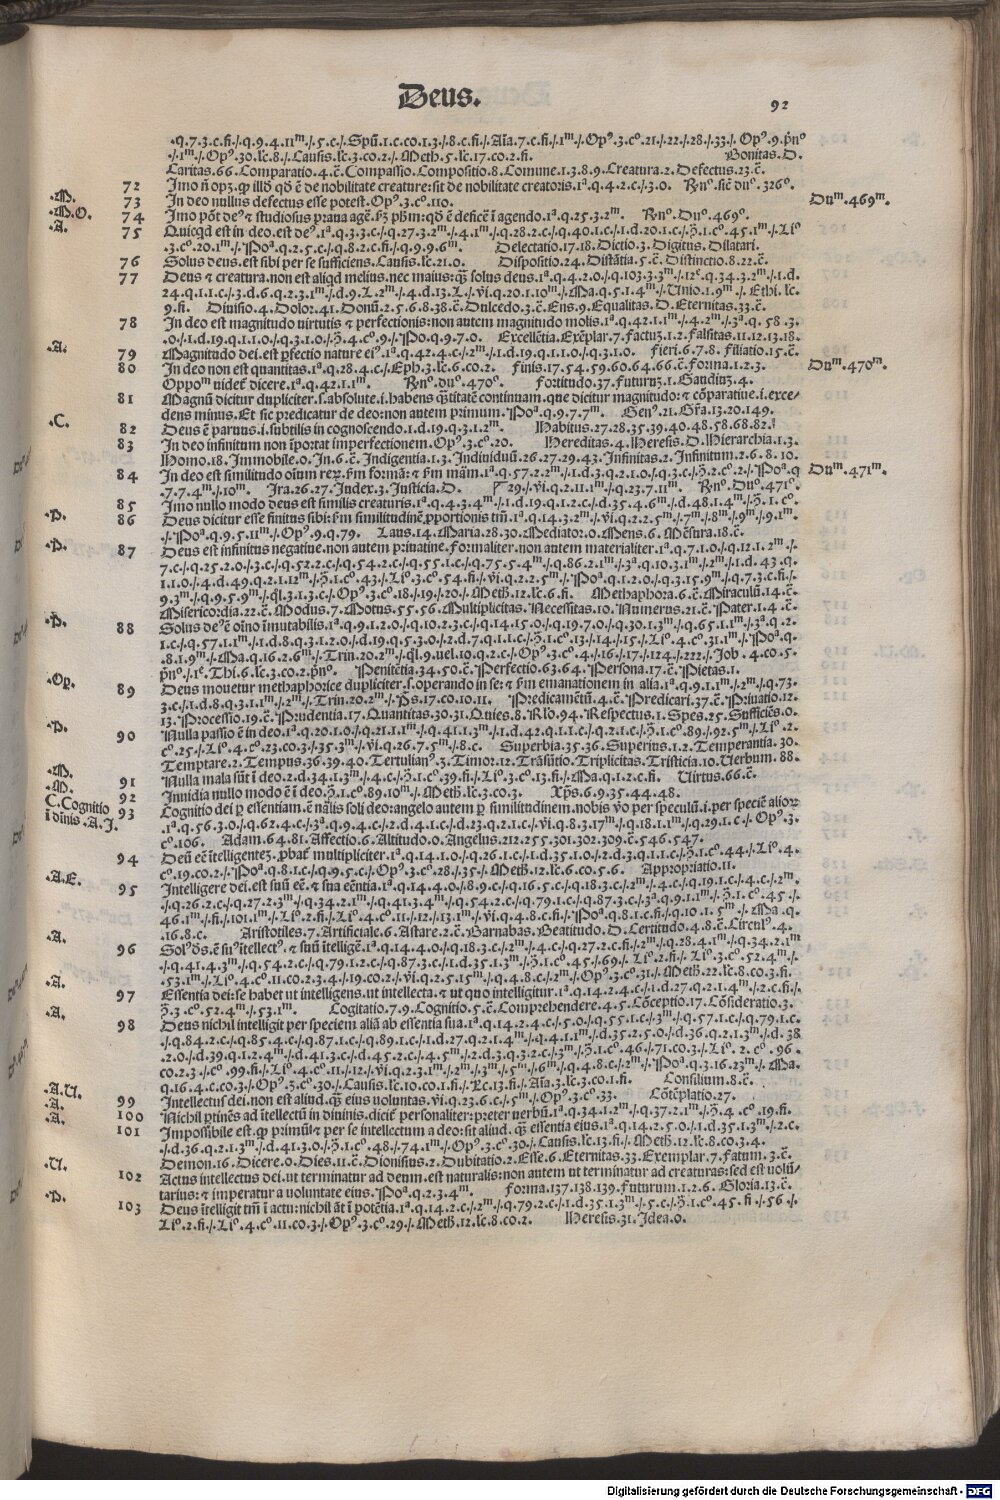 Deus.
92
.q.7.3.c.fi./.q.9.4.11m./.5.c./.Spũ.1.c.co.1.3./.8.c.fi./.Aīa.7.c.fi./.1m./.Opꝰ.3.co.21./.22./.28./.33./.Opꝰ.9.p̄no
./.1m./.Opꝰ.30.lc̄.8./.Causis.lc̄.3.co.2./.Meth̄.5.lc̄.17.co.2.fi. Bonitas.D.
Caritas.66.Comparatio.4.c̄.Compassio.Compositio.8.Comune.1.3.8.9.Creatura.2.Defectus.23.c̄.
72 Imo n̄ opꝫ.ꝙ illđ qđ ē de nobilitate creature:sit de nobilitate creatoris.1a.q.4.2.c./.3.0. Rno.siē duo.326o.
.M. 73 In deo nullus defectus esse potest.Opꝰ.3.co.110. Dum.469m.
.M.O. 74 Imo pōt deꝰ ⁊ studiosus praua agē.ẜꝫ pħm:qđ ē deficē ī agendo.1a.q.25.3.2m. Rno.Duo.469o.
.A. 75 Quicqd est in deo.est deꝰ.1a.q.3.3.c./.q.27.3.2m./.4.1m./.q.28.2.c./.q.40.1.c./.1.d.20.1.c./.ħ.1.co.45.1m./.Lio
.3.co.20.1m./.Poa.q.2.5.c./.q.8.2.c.fi./.q.9.9.6m. Delectatio.17.18.Dictio.3.Digitus.Dilatari.
76 Solus deus.est sibi per se sufficiens.Causis.lc̄.21.0. Dispositio.24.Distātia.5.c̄.Distinctio.8.22.c̄.
77 Deus ⁊ creatura.non est aliqd melius.nec maius:q̄ȝ solus deus.1a.q.4.2.0./.q.103.3.3m./.12e.q.34.3.2m./.1.d.
24.q.1.1.c./.3.d.6.q.2.3.1m./.d.9.L.2m./.4.d.13.L./.vi.q.20.1.10m./.Ma.q.5.1.4m./.Unio.1.9m./.Ethi.lc̄.
9.fi. Diuisio.4.Dolor.41.Donũ.2.5.6.8.38.c̄.Dulcedo.3.c̄.Ens.9.Equalitas.D.Eternitas.33.c̄.
78 In deo est magnitudo uirtutis ⁊ perfectionis:non autem magnitudo molis.1a.q.42.1.1m./.4.2m./.3a.q.58.3.
.0./.1.d.19.q.1.1.0./.q.3.1.0./.ħ.4.co.9./.Po.q.9.7.0. Excellētia.Exēplar.7.factuȝ.1.2.falsitas.11.12.13.18.
.A. 79 Magnitudo dei.est ꝑfectio nature eiꝰ.1a.q.42.4.c./.2m./.1.d.19.q.1.1.0./.q.3.1.0. fieri.6.7.8.filiatio.15.c̄.
80 In deo non est quantitas.1a.q.28.4.c./.Eph.3.lc̄.6.co.2. finis.17.54.59.60.64.66.c̄.forma.1.2.3. Dum.470m.
Oppom uideť dicere.1a.q.42.1.1m. Rno.duo.470o. fortitudo.37.futuruȝ.1.Gaudiuȝ.4.
81 Magnũ dicitur dupliciter.s.absolute.i.habens q̄titatē continuam.que dicitur magnitudo:⁊ cōparatiue.i.exce⸗
dens minus.Et sic predicatur de deo:non autem primum.Poa.q.9.7.7m. Genꝰ.21.Gr̄a.13.20.149.
.C. 82 Deus ē paruus.i.subtilis in cognoscendo.1.d.19.q.3.1.2m. Habitus.27.28.35.39.40.48.58.68.82.
83 In deo infinitum non īportat imperfectionem.Opꝰ.3.co.20. Hereditas.4.Heresis.D.Hierarchia.1.3.
Homo.18.Immobile.0.In.6.c̄.Indigentia.1.3.Indiuiduũ.26.27.29.43.Infinitas.2.Infinitum.2.6.8.10.
84 In deo est similitudo oīum reꝝ.ẜm formā:⁊ ẜm mām.1a.q.57.2.2m./.1.d.3.q.2.1.0./.q.3.c./.ħ.2.co.2./.Poa.q Dum.471m.
.7.7.4m./.10m. Ira.26.27.Index.3.Iusticia.D. 29./.vi.q.2.11.1m./.q.23.7.11m. Rno.Duo.471o.
85 Imo nullo modo deus est similis creaturis.1a.q.4.3.4m./.1.d.19.q.1.2.c./.d.35.4.6m./.d.48.1.4m./.ħ.1.co.
.P. 86 Deus dicitur esse finitus sibi:ẜm similitudinē ꝓportionis tm̄.1a.q.14.3.2m./.vi.q.2.2.5m./.7m./.8m./.9m./.9.1m.
./.Poa.q.9.5.11m./.Opꝰ.9.q.79. Laus.14.Maria.28.30.Mediator.0.Mens.6.Mēsura.18.c̄.
.P. 87 Deus est infinitus negatiue.non autem priuatiue.formaliter.non autem materialiter.1a.q.7.1.0./.q.12.1.2m./.
7.c./.q.25.2.0./.3.c./.q.52.2.c./.q.54.2.c./.q.55.1.c./.q.75.5.4m./.q.86.2.1m./.3a.q.10.3.1m./.2m./.1.d.43.q.
1.1.0./.4.d.49.q.2.1.12m./.ħ.1.co.43./.Lio.3.co.54.fi./.vi.q.2.2.5m./.Poa.q.1.2.0./.q.3.15.9m./.q.7.3.c.fi./.
9.3m./.q.9.5.9m./.q̄l.3.1.3.c./.Opꝰ.3.co.18./.19./.20./.Meth̄.12.lc̄.6.fi. Methaphora.6.c̄.Miraculũ.14.c̄.
Misericordia.22.c̄.Modus.7.Motus.55.56.Multiplicitas.Necessitas.10.Numerus.21.c̄.Pater.1.4.c̄.
.P. 88 Solus deꝰ ē oīno īmutabilis.1a.q.9.1.2.0./.q.10.2.3.c./.q.14.15.0./.q.19.7.0./.q.30.1.3m./.q.65.1.1m./.3a.q.2.
1.c./.q.57.1.1m./.1.d.8.q.3.1.2.0./.d.19.q.5.3.0./.2.d.7.q.1.1.c./.ħ.1.co.13./.14./.15./.Lio.4.co.31.1m./.Poa.q.
.8.1.9m./.Ma.q.16.2.6m./.Trin.20.2m./.q̄l.9.uel.10.q.2.c./.Opꝰ.3.co.4./.16./.17./.124./.222./.Job.4.co.5.
p̄no./.1e.Thi.6.lc̄.3.co.2.p̄no. Penitētia.34.50.c̄.Perfectio.63.64.Persona.17.c̄.Pietas.1.
.Op. 89 Deus mouetur methaphorice dupliciter.s.operando in se:⁊ ẜm emanationem in alia.1a.q.9.1.1m./.2m./.q.73.
3.c./.1.d.8.q.3.1.1m./.2m./.Trin.20.2m./.Ps.17.co.10.11. Predicamētũ.4.c̄.Predicari.37.c̄.Priuatio.12.
13.Processio.19.c̄.Prudentia.17.Quantitas.30.31.Quies.8.Rĺo.94.Respectus.1.Spes.25.Sufficiēs.0.
.P. 90 Nulla passio ē in deo.1a.q.20.1.0./.q.21.1.1m./.q.41.1.3m./.1.d.42.q.1.1.c./.q.2.1.c./.ħ.1.co.89./.92.5m./.Lio.2.
co.25./.Lio.4.co.23.co.3./.35.3m./.vi.q.26.7.5m./.8.c. Superbia.35.36.Superius.1.2.Temperantia.30.
Temptare.2.Tempus.36.39.40.Tertulianꝰ.3.Timor.12.Trāsũtio.Triplicitas.Tristicia.10.Uerbum.88.
.M. 91 Nulla mala sūt ī deo.2.d.34.1.3m./.4.c./.ħ.1.co.39.fi./.Lio.3.co.13.fi./.Ma.q.1.2.c.fi. Uirtus.66.c̄.
.M. 92 Inuidia nullo modo ē ī deo.ħ.1.co.89.10m./.Meth̄.lc̄.3.co.3. Xp̄s.6.9.35.44.48.
C.Cognitio ī diīnis.A.I. 93 Cognitio dei ꝑ essentiam.ē nālis soli deo:angelo autem ꝑ similitudinem.nobis v̊o per speculũ.i.per speciē alioꝝ
.1a.q.56.3.0./.q.62.4.c./.3a.q.9.4.c./.2.d.4.1.c./.d.23.q.2.1.c./.vi.q.8.3.17m./.q.18.1.1m./.q.29.1.c./.Opꝰ.3.
co.106. Adam.64.81.Affectio.6.Altitudo.0.Angelus.212.255.301.302.309.c̄.546.547.
94 Deũ eē ītelligenteȝ.ꝓbať multipliciter.1a.q.14.1.0./.q.26.1.c./.1.d.35.1.0./.2.d.3.q.1.1.c./.ħ.1.co.44./.Lio.4.
co.19.co.2./.Poa.q.8.1.c./.q.9.5.c./.Opꝰ.3.co.28./.35./.Meth̄.12.lc̄.6.co.5.6. Appropriatio.11.
.A.E. 95 Intelligere dei.est suũ eē.⁊ sua eēntia.1a.q.14.4.0./.8.9.c./.q.16.5.c./.q.18.3.c./.2m./.4.c./.q.19.1.c./.4.c./.2m.
./.q.26.2.c./.q.27.2.3m./.q.34.2.1m./.q.41.3.4m./.q.54.2.c./.q.79.1.c./.q.87.3.c./.3a.q.9.1.1m./.ħ.1.co.45./.
46.1m./.fi./.101.1m./.Lio.2.fi./.Lio.4.co.11./.12./.13.1m./.vi.q.4.8.c.fi./.Poa.q.8.1.c.fi./.q.10.1.5m./.Ma.q.
.16.8.c. Aristotiles.7.Artificiale.6.Astare.2.c̄.Barnabas.Beatitudo.D.Certitudo.4.8.c̄.Circulꝰ.4.
.A. 96 Solꝰ dš.ē suꝰ ītellectꝰ.⁊ suũ ītelligē.1a.q.14.4.0./.q.18.3.c./.2m./.4.c./.q.27.2.c.fi./.2m./.q.28.4.1m./.q.34.2.1m
./.q.41.4.3m./.q.54.2.c./.q.79.1.2.c./.q.87.3.c./.1.d.35.1.3m./.ħ.1.co.45./.69./.Lio.2.fi./.Lio.3.co.52.4m./.
.53.1m./.Lio.4.co.11.co.2.3.4./.19.co.2./.vi.q.2.5.15m./.q.4.8.c./.2m./.Opꝰ.3.co.31./.Meth̄.22.lc̄.8.co.3.fi.
.A. 97 Essentia dei:se habet ut intelligens.ut intellecta.⁊ ut quo intelligitur.1a.q.14.2.4.c./.1.d.27.q.2.1.4m./.2.c.fi./.
ħ.3.co.52.4m./.53.1m. Cogitatio.7.9.Cognitio.5.c̄.Comprehendere.4.5.Cōceptio.17.Cōsideratio.3.
.A. 98 Deus nichil intelligit per speciem aliā ab essentia sua.1a.q.14.2.4.c./.5.0./.q.55.1.c./.3m./.q.57.1.c./.q.79.1.c.
./.q.84.2.c./.q.85.4.c./.q.87.1.c./.q.89.1.c./.1.d.27.q.2.1.4m./.q.4.1.1m./.d.35.2.5.0./.d.36.q.2.1.3m./.d.38
.2.0./.d.39.q.1.2.4m./.d.41.3.c./.d.45.2.c./.4.5m./.2.d.3.q.3.2.c./.3m./.ħ.1.co.46./.71.co.3./.Lio.2.co.96.
co.2.3./.co.99.fi./.Lio.4.co.11./.12./.vi.q.2.3.1m./.2m./.3m./.5m./.6m./.q.4.8.c./.2m./.Poa.q.3.16.23m./.Ma.
q.16.4.c.co.3./.Opꝰ.3.co.30./.Causis.lc̄.10.co.1.fi./.Rc.13.fi./.Aīa.3.lc̄.3.co.1.fi. Consilium.8.c̄.
.A.U. 99 Intellectus dei.non est aliud.q̄ȝ eius uoluntas.vi.q.23.6.c./.5m./.Opꝰ.3.co.33. Cōtēplatio.27.
.A. 100 Nichil ꝑtinēs ad ītellectũ in diuinis.diciť personaliter:preter uerbũ.1a.q.34.1.2m./.q.37.2.1m./.ħ.4.co.19.fi.
.A. 101 Impossibile est.ꝙ primũ:⁊ per se intellectum a deo:sit aliud.q̄ȝ essentia eius.1a.q.14.2.5.0./.1.d.35.1.3m./.2.c.
./.d.36.q.2.1.3m./.d.41.3.0./.ħ.1.co.48./.74.1m./.Opꝰ.3.co.30./.Causis.lc̄.13.fi./.Meth̄.12.lc̄.8.co.3.4.
Demon.16.Dicere.0.Dies.11.c̄.Dionisius.2.Dubitatio.2.Esse.6.Eternitas.33.Exemplar.7.fatum.3.c̄.
.U. 102 Actus intellectus dei.ut terminatur ad deum.est naturalis:non autem ut terminatur ad creaturas:sed est uolũ⸗
tarius:⁊ imperatur a uoluntate eius.Poa.q.2.3.4m. forma.137.138.139.futurum.1.2.6.Gloria.13.c̄.
.P. 103 Deus ītelligit tm̄ ī actu:nichil āt ī potētia.1a.q.14.2.c./.2m./.q.79.2.c./.1.d.35.1.3m./.5.c./.ħ.1.co.45.fi./.56./.
Lio.2.fi./.Lio.4.co.11.co.3./.Opꝰ.3.co.29./.Meth̄.12.lc̄.8.co.2. Heresis.31.Idea.0.
Digitalisierung gefördert durch die Deutsche Forschungsgemeinschaft - DFG